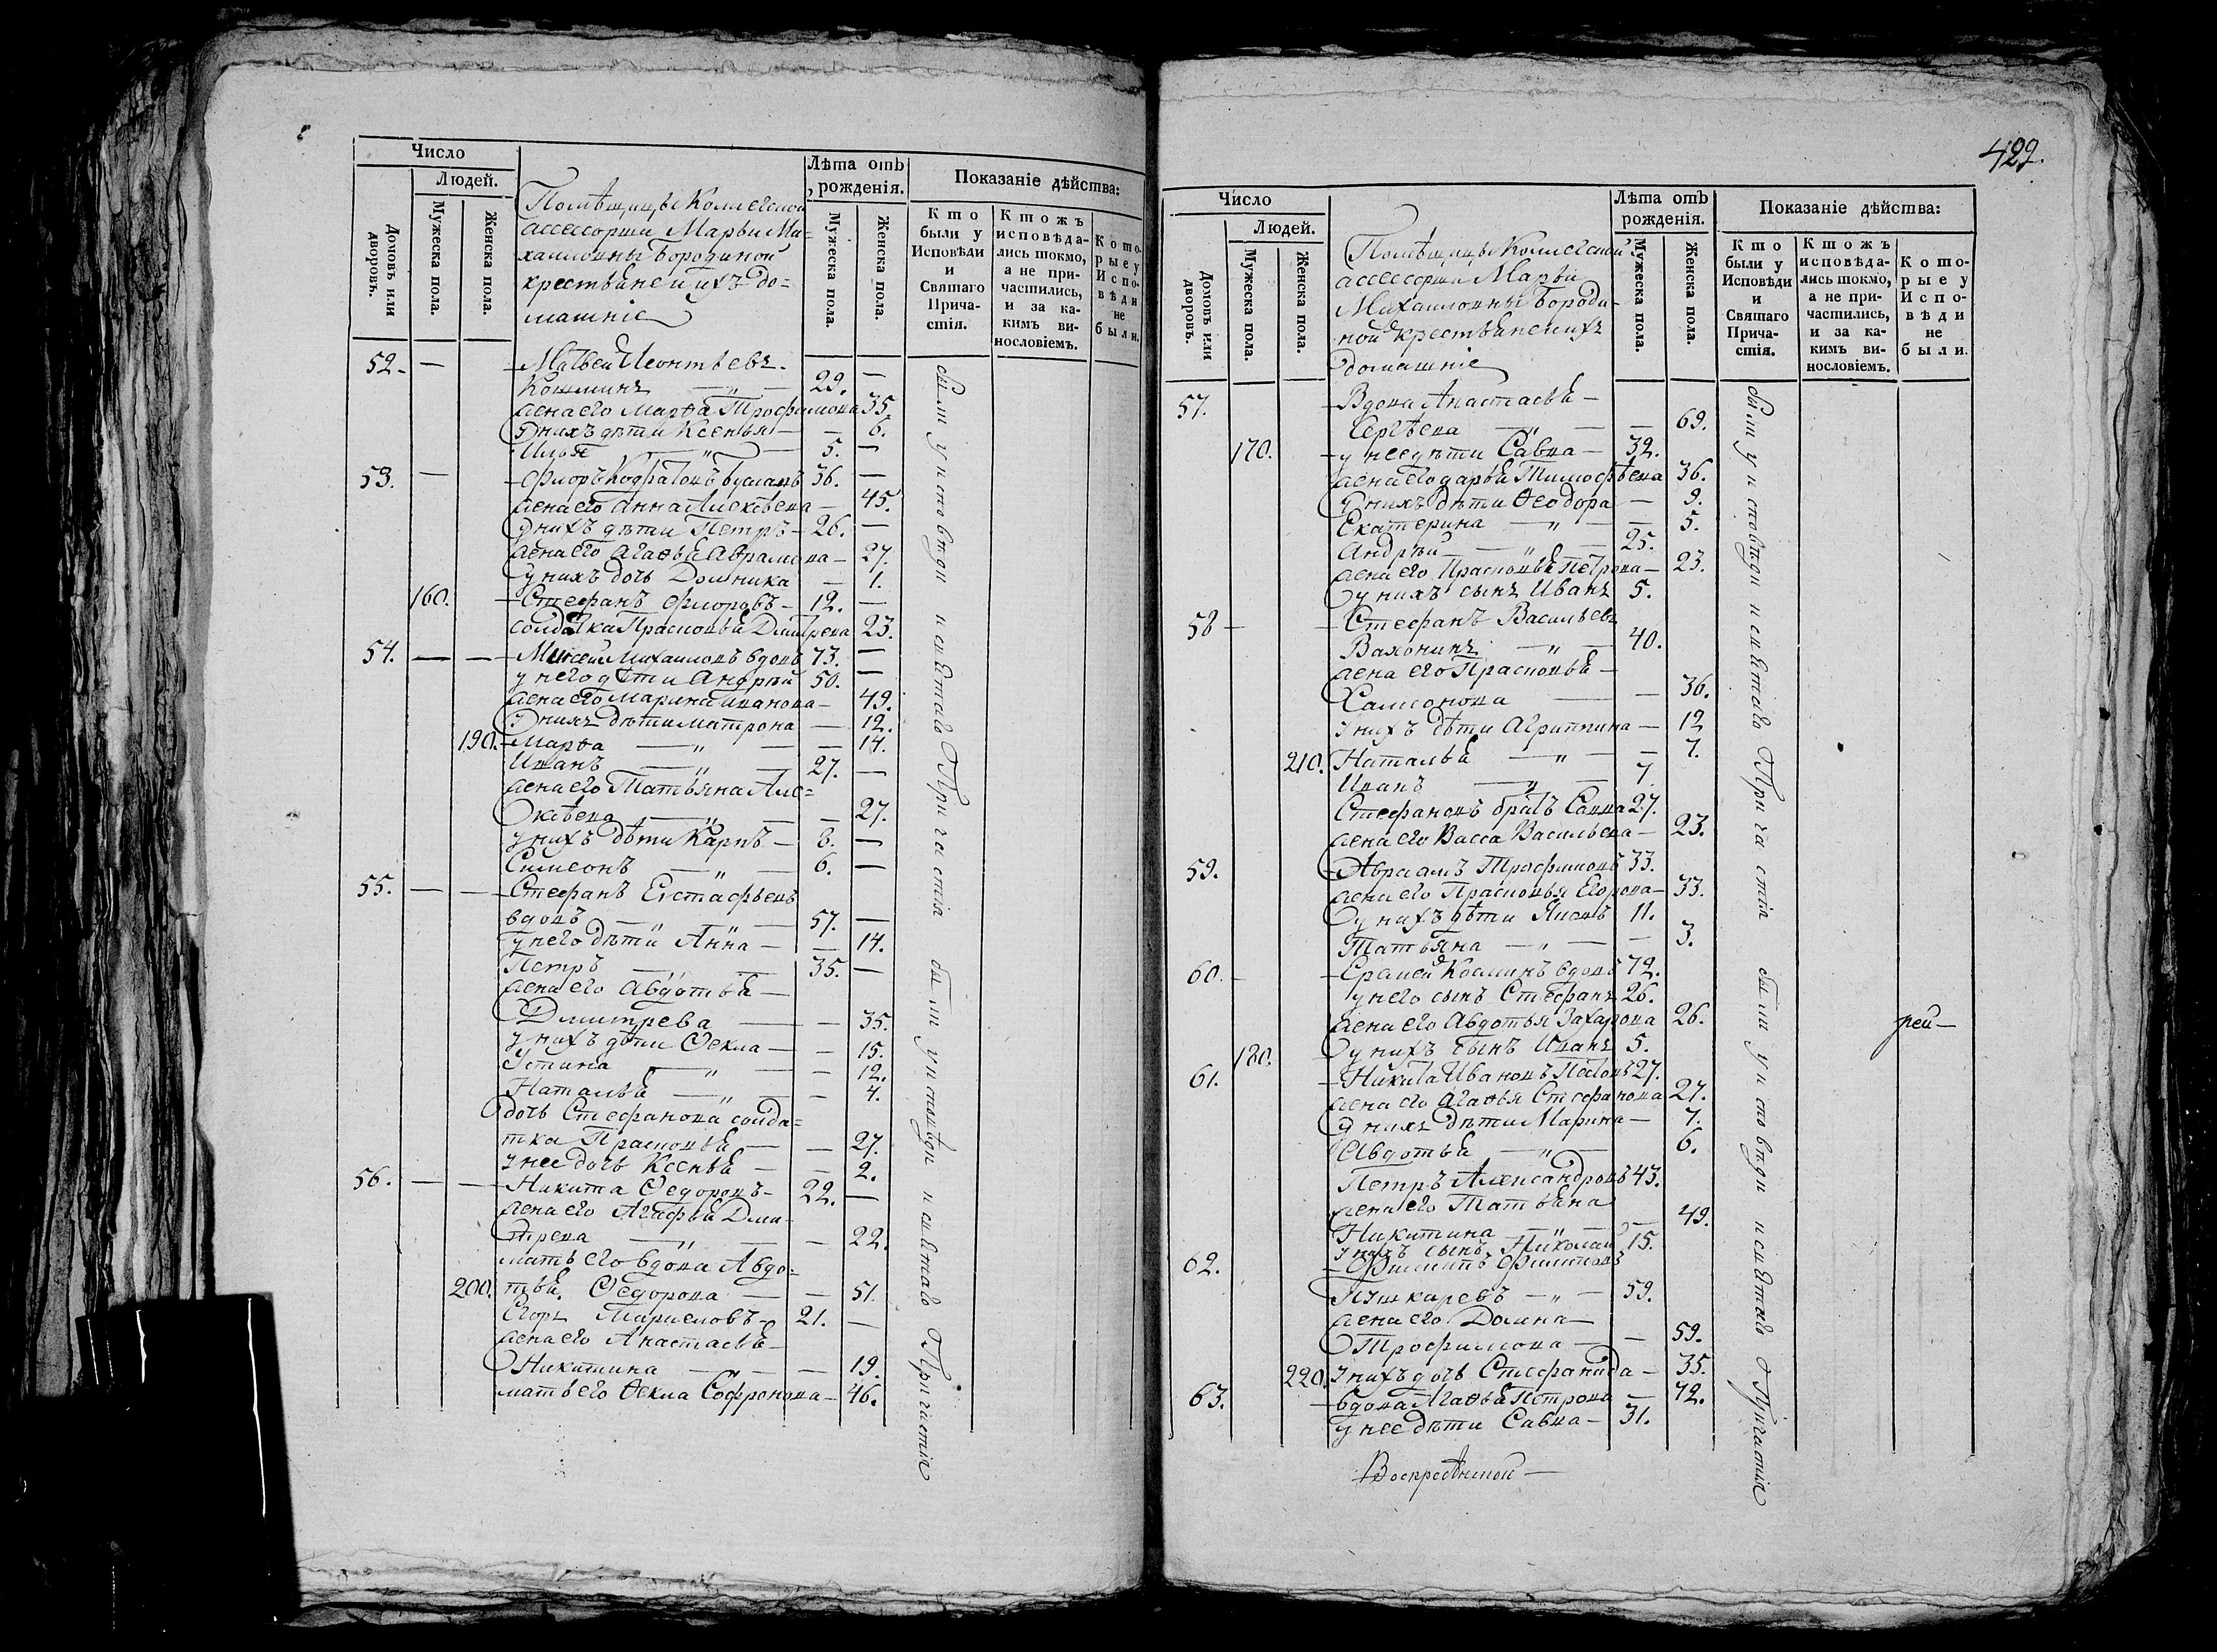 Число
Людей.
Домовъ или дворовъ.
Мужеска пола.
Женска пола.
Помѣщицы Коллегской
ассесорши Марьи Ми=
хаиловны Бородиной
крестьяне и ихъ до=
машніе
Лѣта отъ рожденія.
Мужеска пола.
Женска пола.
Показаніе дѣйства:
Кто были у Исповѣди и Святаго Причастія.
Ктожъ исповѣдались токмо, а не причастились, и за какимъ винословіемъ.
Которые у Исповѣди не были.
52. — Матвей Леонтьевъ
— „ — 29. —
жена его Марѳа Трофимова 35.
у нихъ дѣти Ксенья — — 6.
Илья — „ — 5. —
53. — Флоръ 36. —
жена его Анна Алексѣева — 45.
у нихъ дѣти Петръ — 26. —
жена его Агаѳья Абрамова — 27.
у нихъ дочь Домника — 1.
160. Стефанъ Флоровъ — 12. —
солдатка Прасковья Дмитрева 23.
54. — — Михаиловъ вдовъ 73. —
у него дѣти Андрей 50. —
жена его Марина Иванова — 49.
у нихъ дѣти Матрона — 12.
190. Марѳа — „ — — 14.
Иванъ — „ — 27. —
жена его Татьяна Але=
ксѣева — „ — — 27.
у нихъ дѣти Карпъ — 8. —
Симеонъ — „ — 6. —
55. — — Стефанъ Евстафьевъ
вдовъ — „ — 57. —
у него дѣти Анна — — 14.
Петръ — „ — 35. —
жена его Авдотья —
Дмитрева — — 35.
у нихъ дѣти Ѳекла — — 15.
Устина — „ — — 12.
Наталья — „ — — 4.
дочь Стефанова солда=
тка Прасковья — — 27.
у нее дочь Ксенья — — 2.
56. — — Никита Ѳедоровъ — 22. —
жена его Агафья Дми-
трева — „ — — 22.
мать его вдова Авдо=
200. тья Ѳедорова — — 51.
Егоръ 21. —
жена его Анастасья —
Никитина — „ — — 19.
мать его Ѳекла Софронова — 46.
были у исповѣди и святаго Причастія
были у исповѣди и святаго Причастія
422.
Число
Людей.
Домовъ или дворовъ.
Мужеска пола.
Женска пола.
Помѣщицы Коллегской
ассесорши Марьи
Михаиловны Бороди-
ной крестьяне и ихъ
домашніе
Лѣта отъ рожденія.
Мужеска пола.
Женска пола.
Показаніе дѣйства:
Кто были у Исповѣди и Святаго Причастія.
Ктожъ исповѣдались токмо, а не причастились, и за какимъ винословіемъ.
Которые у Исповѣди не были.
57. Вдова Анастасья —
Сергѣева — „ — — 69.
170. у нее дѣти Савва — 32.
жена его Дарья Тимофѣева 36.
у нихъ дѣти Ѳеодора — 9.
Екатерина — „ — — 5.
Андрей — „ — 25.
жена его Прасковья Петрова — 23.
у нихъ сынъ Иванъ 5.
58 — — Стефанъ Васильевъ
— „ — 40.
жена его Прасковья —
— 36.
у нихъ дѣти Агриппина — 12
210. Наталья — „ — — 7.
Иванъ — „ — 7.
Стефановъ братъ Савва 27.
жена его Васса Васильева — 23.
59. Авраамъ Трофимовъ 33.
жена его Прасковья Егорова — 33.
у нихъ дѣти Яковъ 11.
Татьяна — „ — — 3.
60. — вдовъ 72.
у него сынъ Стефанъ 26.
жена его Авдотья Захарова 26.
180. у нихъ сынъ Иванъ 5.
61. Никита Ивановъ 27.
жена его Агаѳья Стефанова 27.
у нихъ дѣти Марина — 7.
Авдотья — „ — 6.
Петръ Александровъ 43.
жена его Татьяна
Никитина — „ — — 49.
у нихъ сынъ Николай 15.
62. Филипъ Филиповъ
Пушкаревъ — „ — 59.
жена его Домна —
Трофимова — — 59.
220. у нихъ дочь Стефанида — 35.
63. вдова Агаѳья Петрова — 72.
у нее дѣти Савва — 31.
были у исповѣди и святаго Причастія
были у исповѣди и святаго Причастія
рей —